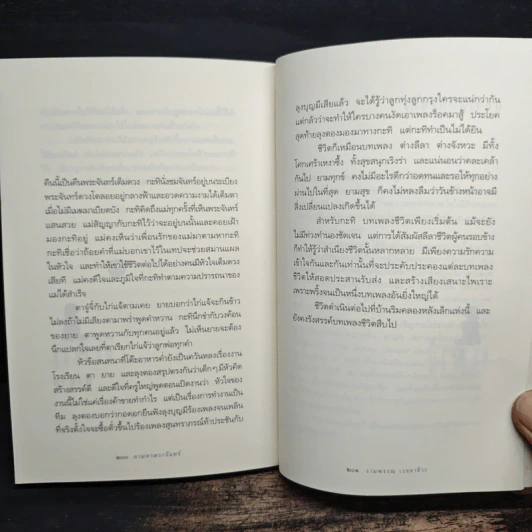 คืนนี้เป็นคืนพระจันทร์เต็มดวง กะทินั่งชมจันทร์อยู่บนระเบียง
พระจันทร์ดวงโตลอยอยู่กลางฟ้าและอวดความงามได้เต็มตา
เมื่อไม่มีเมฆมาเบียดบัง กะทิคิดถึงแม่ทุกครั้งที่เห็นพระจันทร์
แสนสวย แม่สัญญากับกะทิไว้ว่าจะอยู่บนนั้นและคอยเฝ้า
มองกะทิอยู่ แม่คงเห็นว่าเพื่อนรักของแม่มาหากะทิ
กะทิเชื่อว่าถ้อยคำที่แม่บอกเขาไว้ในเทปจะช่วยสมานแผล
ในหัวใจ และทำให้เขาใช้ชีวิตต่อไปได้อย่างคนมีหัวใจเต็มดวง
เสียที แม่คงดีใจและภูมิใจที่กะทิทำตามความปรารถนาของ
แม่ได้สำเร็จ
ตาจู้จี้กับไก่แจ้ตามเคย ยายบอกว่าไก่แจ้จะกินข้าว
ไม่ลงถ้าไม่มีเสียงตามาพร่ำพูดคำหวาน กะทินึกขำวงค้อน
ของยาย ตาพูดหวานกับทุกคนอยู่แล้ว ไม่เห็นยายจะต้อง
นึกแปลกใจเลยที่ตาเรียกไก่แจ้ว่าลูกพ่อทุกคำ
หัวข้อสนทนาที่โต๊ะอาหารค่ำยังเป็นควันหลงเรื่องงาน
โรงเรียน ตา ยาย และลุงตองสรุปตรงกันว่าเด็กๆ มีหัวคิด
สร้างสรรค์ดี และดีใจที่ครูใหญ่พูดตอนเปิดงานว่า หัวใจของ
งานนี้ไม่ใช่แค่เรื่องค้าขายทำกำไร แต่เป็นเรื่องการทำงานเป็น
ทีม ลุงตองบอกว่ากอดอกยืนฟังลุงบุญมีร้องเพลงจนเพลิน
ที่จริงตั้งใจจะซื้อตั๋วขึ้นไปร้องเพลงสุนทราภรณ์ท้าประชันกับ
๒๐๐ ตามหาพระจันทร์
ลุงบุญมีเสียแล้ว จะได้รู้ว่าลูกทุ่งลูกกรุงใครจะแน่กว่ากัน
แต่กลัวว่าจะทำให้ใครบางคนงัดเอาเพลงร็อคมาสู้ ประโยค
สุดท้ายลุงตองมองมาทางกะทิ แต่กะทิทำเป็นไม่ได้ยิน
ชีวิตก็เหมือนบทเพลง ต่างลีลา ต่างจังหวะ มีทั้ง
โศกเศร้าเหงาซึ้ง ทั้งสุขสนุกเริงร่า และแน่นอนว่าคละเคล้า
กันไป ยามทุกข์ คงไม่มีอะไรดีกว่าอดทนและรอให้ทุกอย่าง
ผ่านไปในที่สุด ยามสุข ก็คงไม่หลงลืมว่าวันข้างหน้าอาจมี
สิ่งเปลี่ยนแปลงเกิดขึ้นได้
สำหรับกะทิ บทเพลงชีวิตเพียงเริ่มต้น แม้จะยัง
ไม่มีท่วงทำนองชัดเจน แต่การได้สัมผัสลีลาชีวิตผู้คนรอบข้าง
ก็ทำให้รู้ว่าสำเนียงชีวิตนั้นหลากหลาย มีเพียงความรักความ
เข้าใจกันและกันเท่านั้นที่จะประคับประคองแต่ละบทเพลง
ชีวิตให้สอดประสานรับส่ง และสร้างเสียงเสนาะไพเราะ
เพราะพริ้งจนเป็นหนึ่งบทเพลงอันยิ่งใหญ่ได้
ชีวิตดำเนินต่อไปที่บ้านริมคลองหลังเล็กแห่งนี้ และ
ยังคงรังสรรค์บทเพลงชีวิตสืบไป
๒๐๑ งามพรรณ เวชชาชีวะ